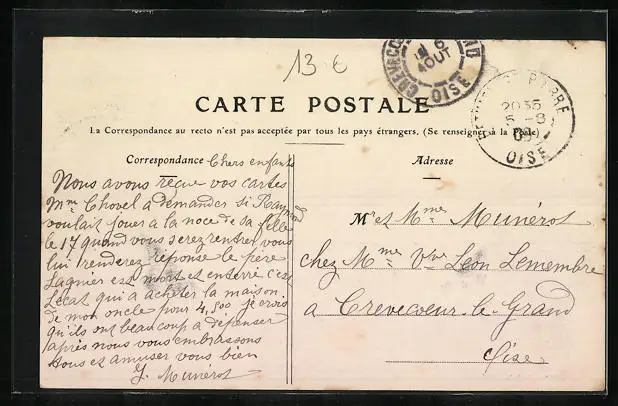 13 €
CREVECOEUR
6
AOUT
OISE
PIERRE
20 35
5 -8
09
OISE
CARTE POSTALE
La Correspondance au recto n'est pas acceptée par tous les pays étrangers. (Se renseigner à la Poste)
Correspondance Chers enfants
Nous avons reçue vos cartes
Mme Chovel a demander si Raymond
voulait jouer a la noce de sa fille
le 17 quand vous serez rentrer vous
lui renderez réponse le père
Lagnier est mort et enterré c'est
Lecat qui a acheter la maison
de mon oncle pour 4,500 je crois
qu'ils ont beaucoup a dépenser
après nous vous embrassons
tous et amuser vous bien
J. Munérot
Adresse
Mr et Mme Munérot
chez Mme Vve Léon Lemembre
a Crevecoeur-le-Grand
Oise